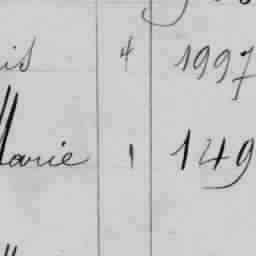 is 4 1997
Marie 1 149